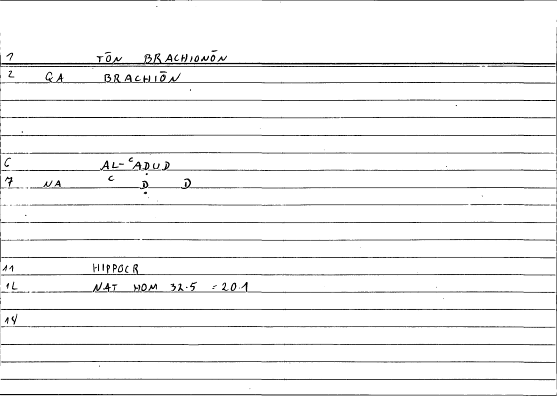 1 TŌN BRACHIONŌN
2 GA BRACHIŌN
6 AL-ʿAḌUD
7 NA ʿ Ḍ D
11 HIPPOCR
12 NAT HOM 32.5 = 20.1
14